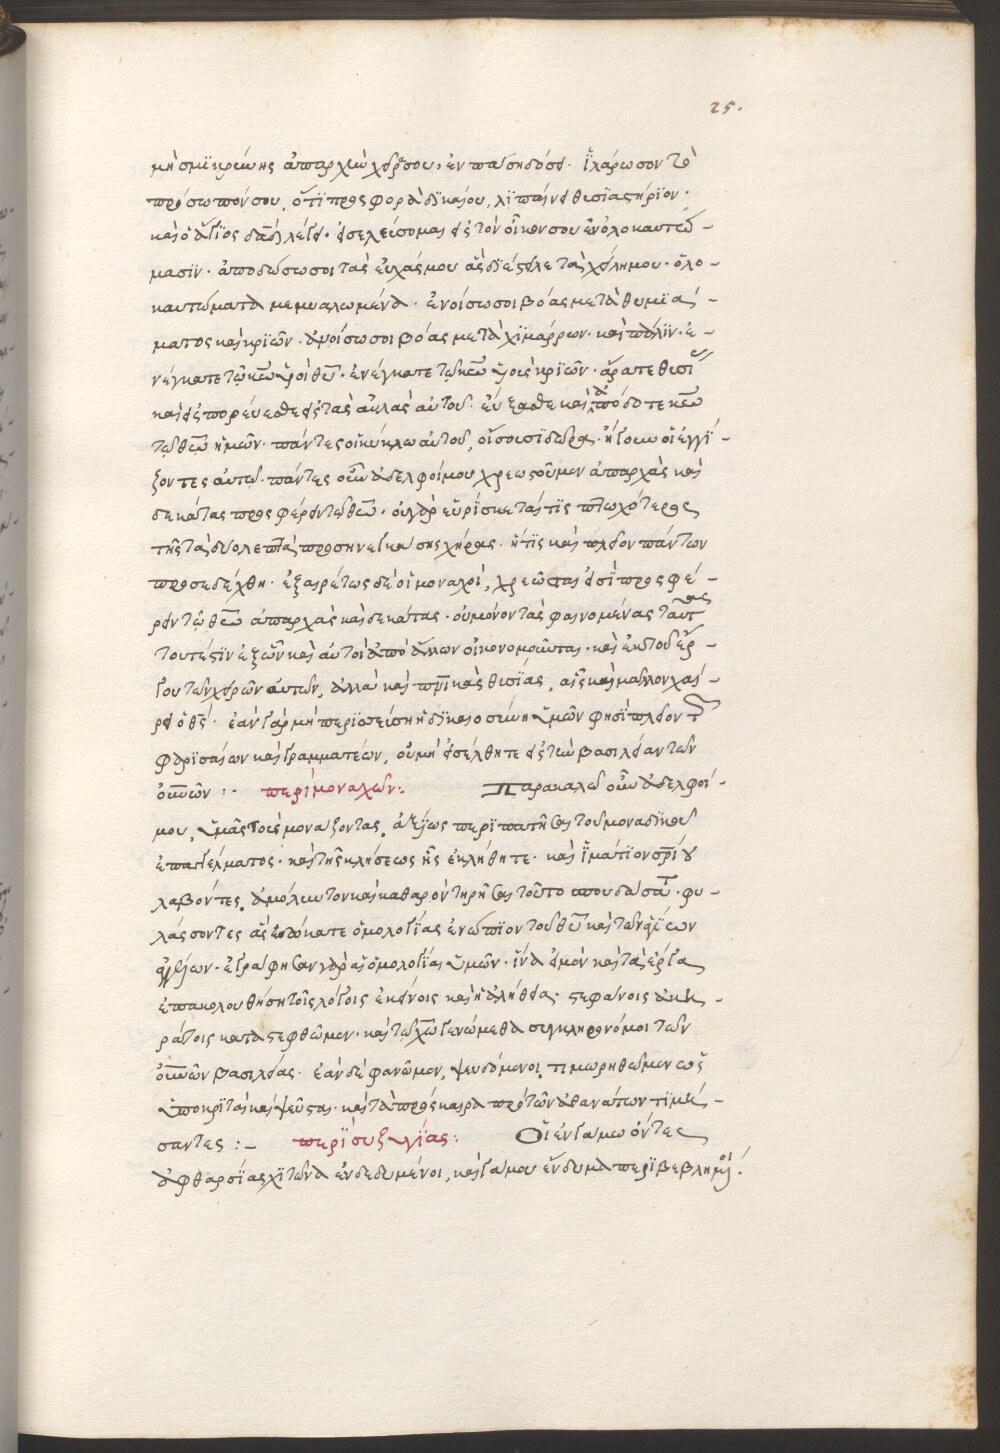 25.
μὴ σμϊκρύνης ἀπαρχὴν χειρῶν σου, ἐν πάση δόσει. ἱλάρωσον τὸ
πρόσωπόν σου, ὅτϊ προσφορὰ δϊκαίου, λϊπαίνει θυσϊαστήρϊον.
καὶ ὁ ἅγϊος δᾱδ λέγει. εἰσελεύσομαι εἰς τὸν οἶκον σου ἐν ὁλοκαυτώ –
μασϊν. ἀποδώσω σοι τὰς εὐχάς μου ἃς δϊέστειλε τὰ χείλη μου. ὁλο –
καυτώματα μεμυαλωμένα. ἀνοίσω σοι βόας μετὰ θυμϊά –
ματος καὶ κριῶν. ἀνοίσω σοι βόας μετὰ χϊμάρρων. καὶ πάλϊν. ἐ –
νέγκατε τῷ κ̅ω̅ υἱοὶ θ̅υ̅. ἐνέγκατε τῷ κ̅ω̅ υἱοὺς κριῶν. ἄρατε θυσί
καὶ εἰσπορεύεσθε εἰς τὰς αὐλὰς αὐτοῦ. εὔξασθε καὶ ἀπόδοτε κ̅ω̅
τῷ θ̅ω̅ ἡμῶν. πάντες οἱ κύκλω αὐτοῦ, οἴσουσϊ δῶρα. ἤγουν οἱ ἐγγϊ –
ζοντες αὐτῷ. πάντες οὖν ἀδελφοί μου χρεωστοῦμεν ἀπαρχὰς καὶ
δεκάτας προσφέρειν τῷ θ̅ω̅. οὐ γὰρ εὑρϊσκεταί τϊς πτωχότερος
τῆς τὰ δύο λεπτὰ προσηνεγκάσης χήρας. ἥτϊς καὶ πλεῖον πάντων
προσεδέχθη. ἐξαιρέτως δὲ οἱ μοναχοί, χρεῶσταί εἰσϊ προσφέ –
ρειν τῷ θ̅ω̅ ἀπαρχὰς καὶ δεκάτας. οὐ μόνον τὰς φαινομένας ταύτας
τουτέστϊν ἐξ ὧν καὶ αὐτοὶ ἀπὸ ἄλλων οἰκονομοῦνται. καὶ ἐκ τοῦ ἔρ –
γου τῶν χειρῶν αὐτῶν, ἀλλὰ καὶ π̅ν̅ικὰς θυσϊάς, αἷς καὶ μᾶλλον χαί –
ρει ὁ θ̅ς̅. ἐὰν γὰρ μὴ περϊσσεύση ἡ δϊκαιοσύνη ὑμῶν φησϊ πλεῖον τῶν
φαρϊσαίων καὶ γραμματέων, οὐ μὴ εἰσέλθητε εἰς τὴν βασιλείαν τῶν
ο̅υ̅νῶν :· περὶ μοναχῶν: Παρακαλῶ οὖν ἀδελφοί –
μου, ὑμᾶς τοὺς μονάζοντας, ἀξίως περϊπατῆσαι τοῦ μοναδϊκοῦ
ἐπαγγέλματος. καὶ τῆς κλήσεως ἧς ἐκλήθητε. καὶ ἱμάτϊον σ̅ρ̅ίου
λαβόντες, ἀμόλυντον καὶ καθαρὸν τηρῆσαι τοῦτο σπουδάσατε. φυ –
λάσσοντες ἃς δεδώκατε ὁμολογϊας ἐνώπϊον τοῦ θ̅υ̅ καὶ τῶν ἁγϊων
ἀγγέλων. ἐγράφησαν γὰρ αἱ ὁμολογϊαι ὑμῶν. ἵνα ἐὰν καὶ τὰ ἔργα
ἐπακολουθήση τοῖς λόγοις ἐκείνοις καὶ ἡ ἀλήθεια. στεφάνοις ἀκη –
ράτοις καταστεφθῶμεν. καὶ τῷ χ̅ω̅ γενώμεθα συγκληρονόμοι τῶν
ο̅υ̅νῶν βασιλείας. ἐὰν δὲ φανῶμεν, ψευδόμενοι, τιμωρηθῶμεν ὡς
ὑποκρϊταὶ καὶ ψεῦσται. καὶ τὰ πρόσκαιρα πρὸ τῶν ἀθανάτων τϊμή –
σαντες :– περϊ συζυγϊας: Οἱ ἐν γάμω ὄντες
ἀφθαρσϊας χϊτῶνα ἐνδεδυμένοι, καὶ γάμου ἔνδυμα περϊβεβλημένοι.